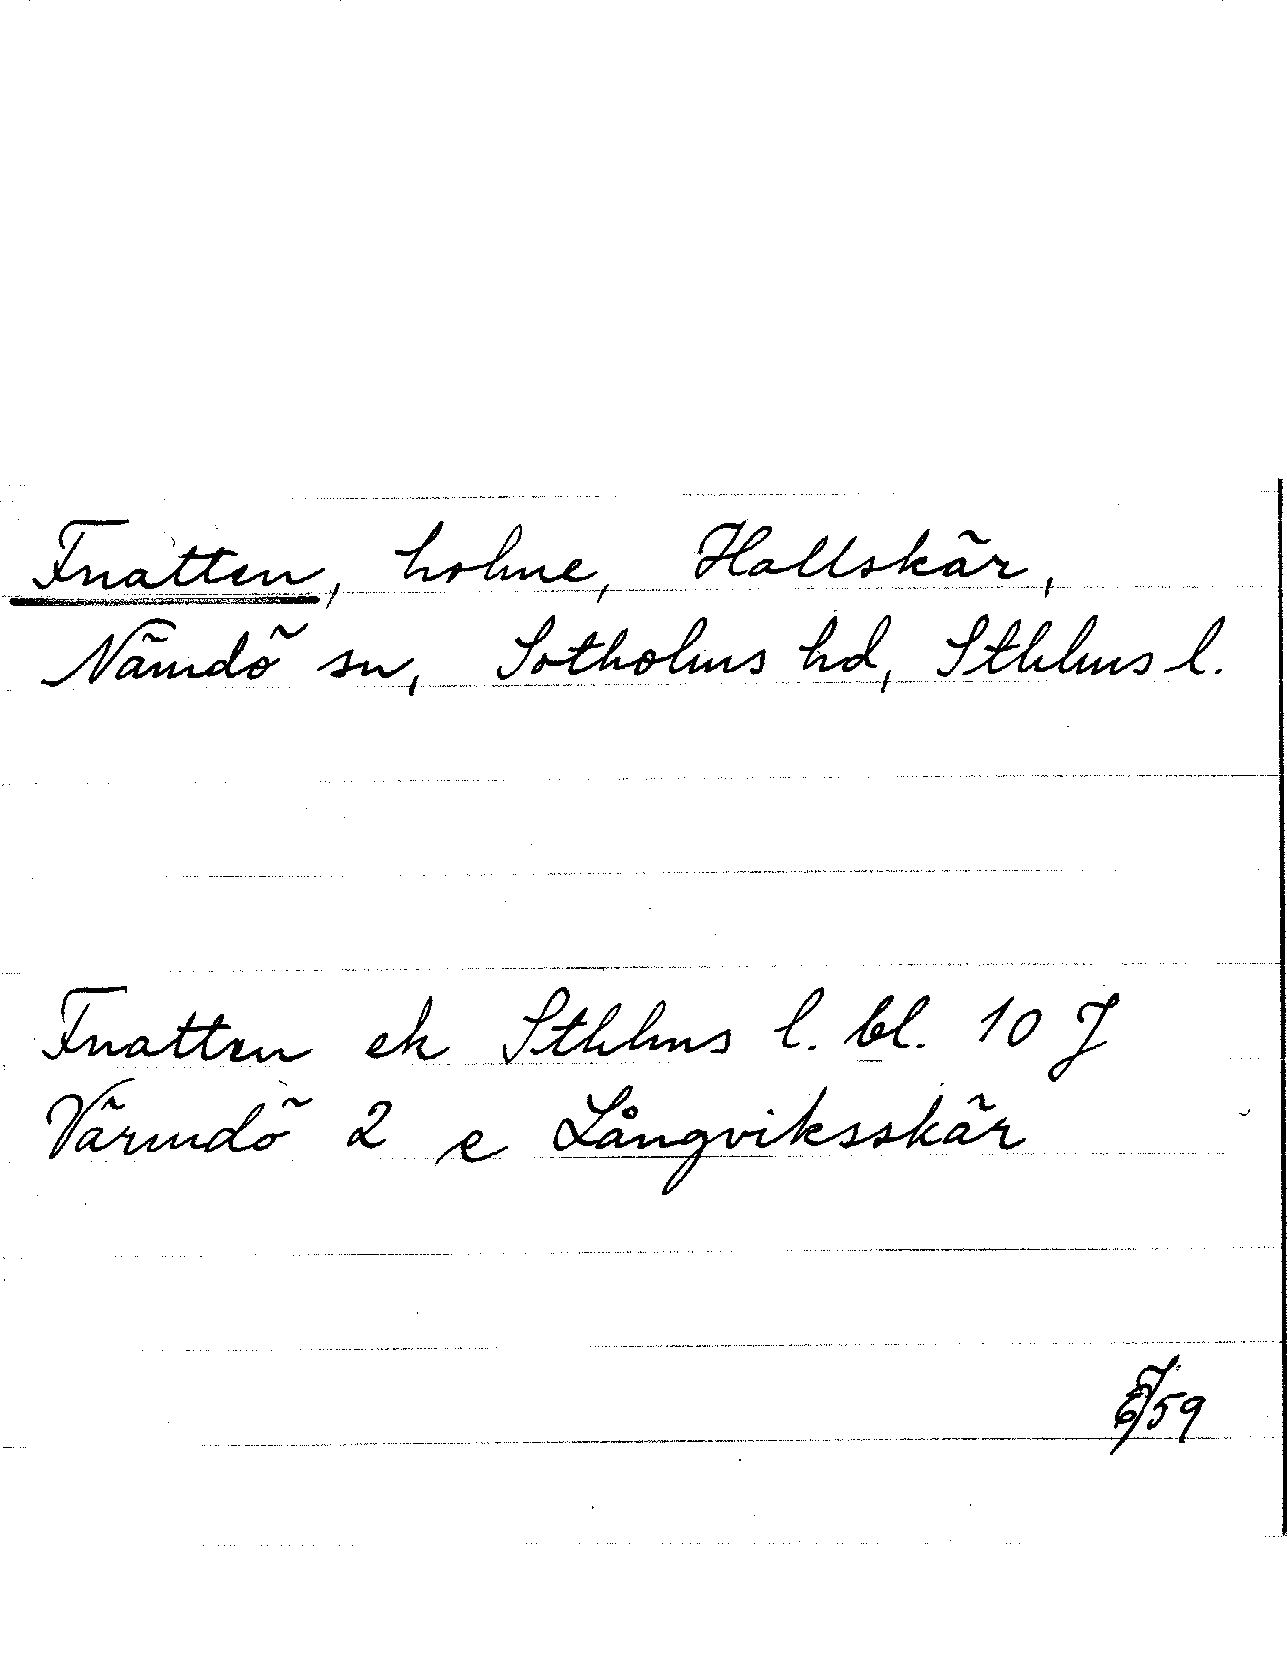 Fnatten, holme, Hallskär,
Nämdö sn, Sotholms hd, Sthlms l.
Fnatten ek Sthlms l. bl. 10 J
Värmdö 2 e Långviksskär
59